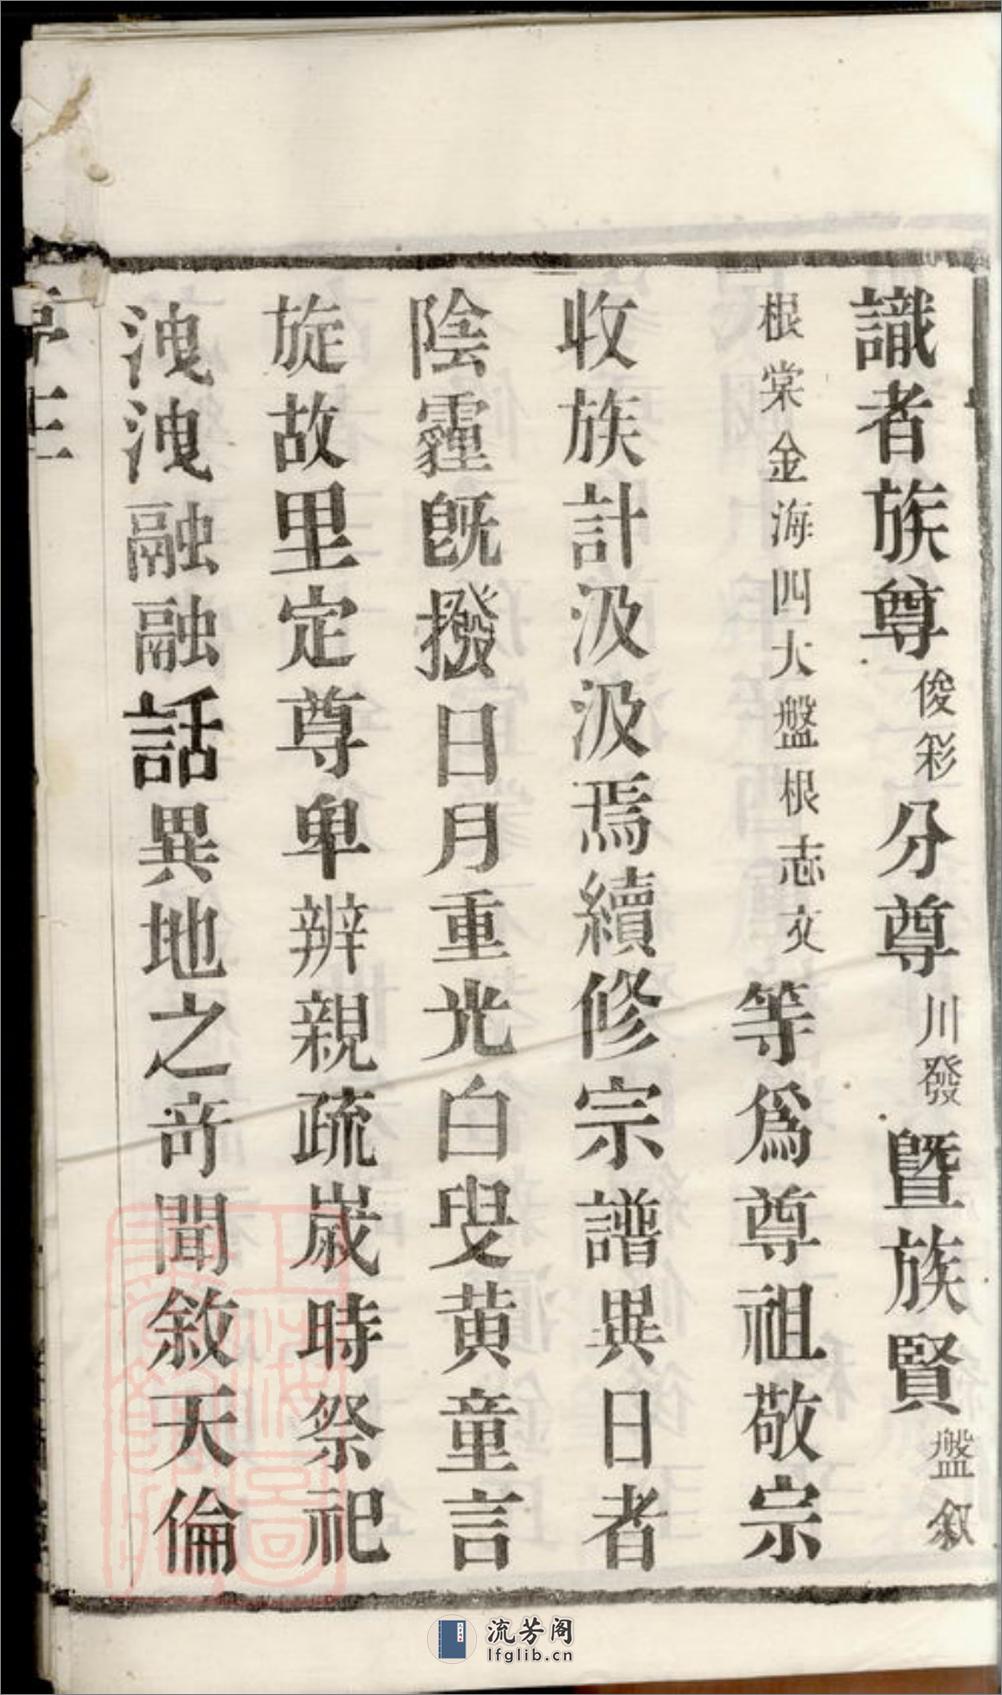 識者族尊俊彩分尊川發暨族賢盤叙
根棠金海四大盤根志交等爲尊祖敬宗
收族計汲汲焉續修宗譜異日者
陰霾旣撥日月重光白叟黄童言
旋故里定尊卑辨親疏歲時祭祀
洩洩融融話異地之奇聞敘天倫
流芳阁
lfglib.cn